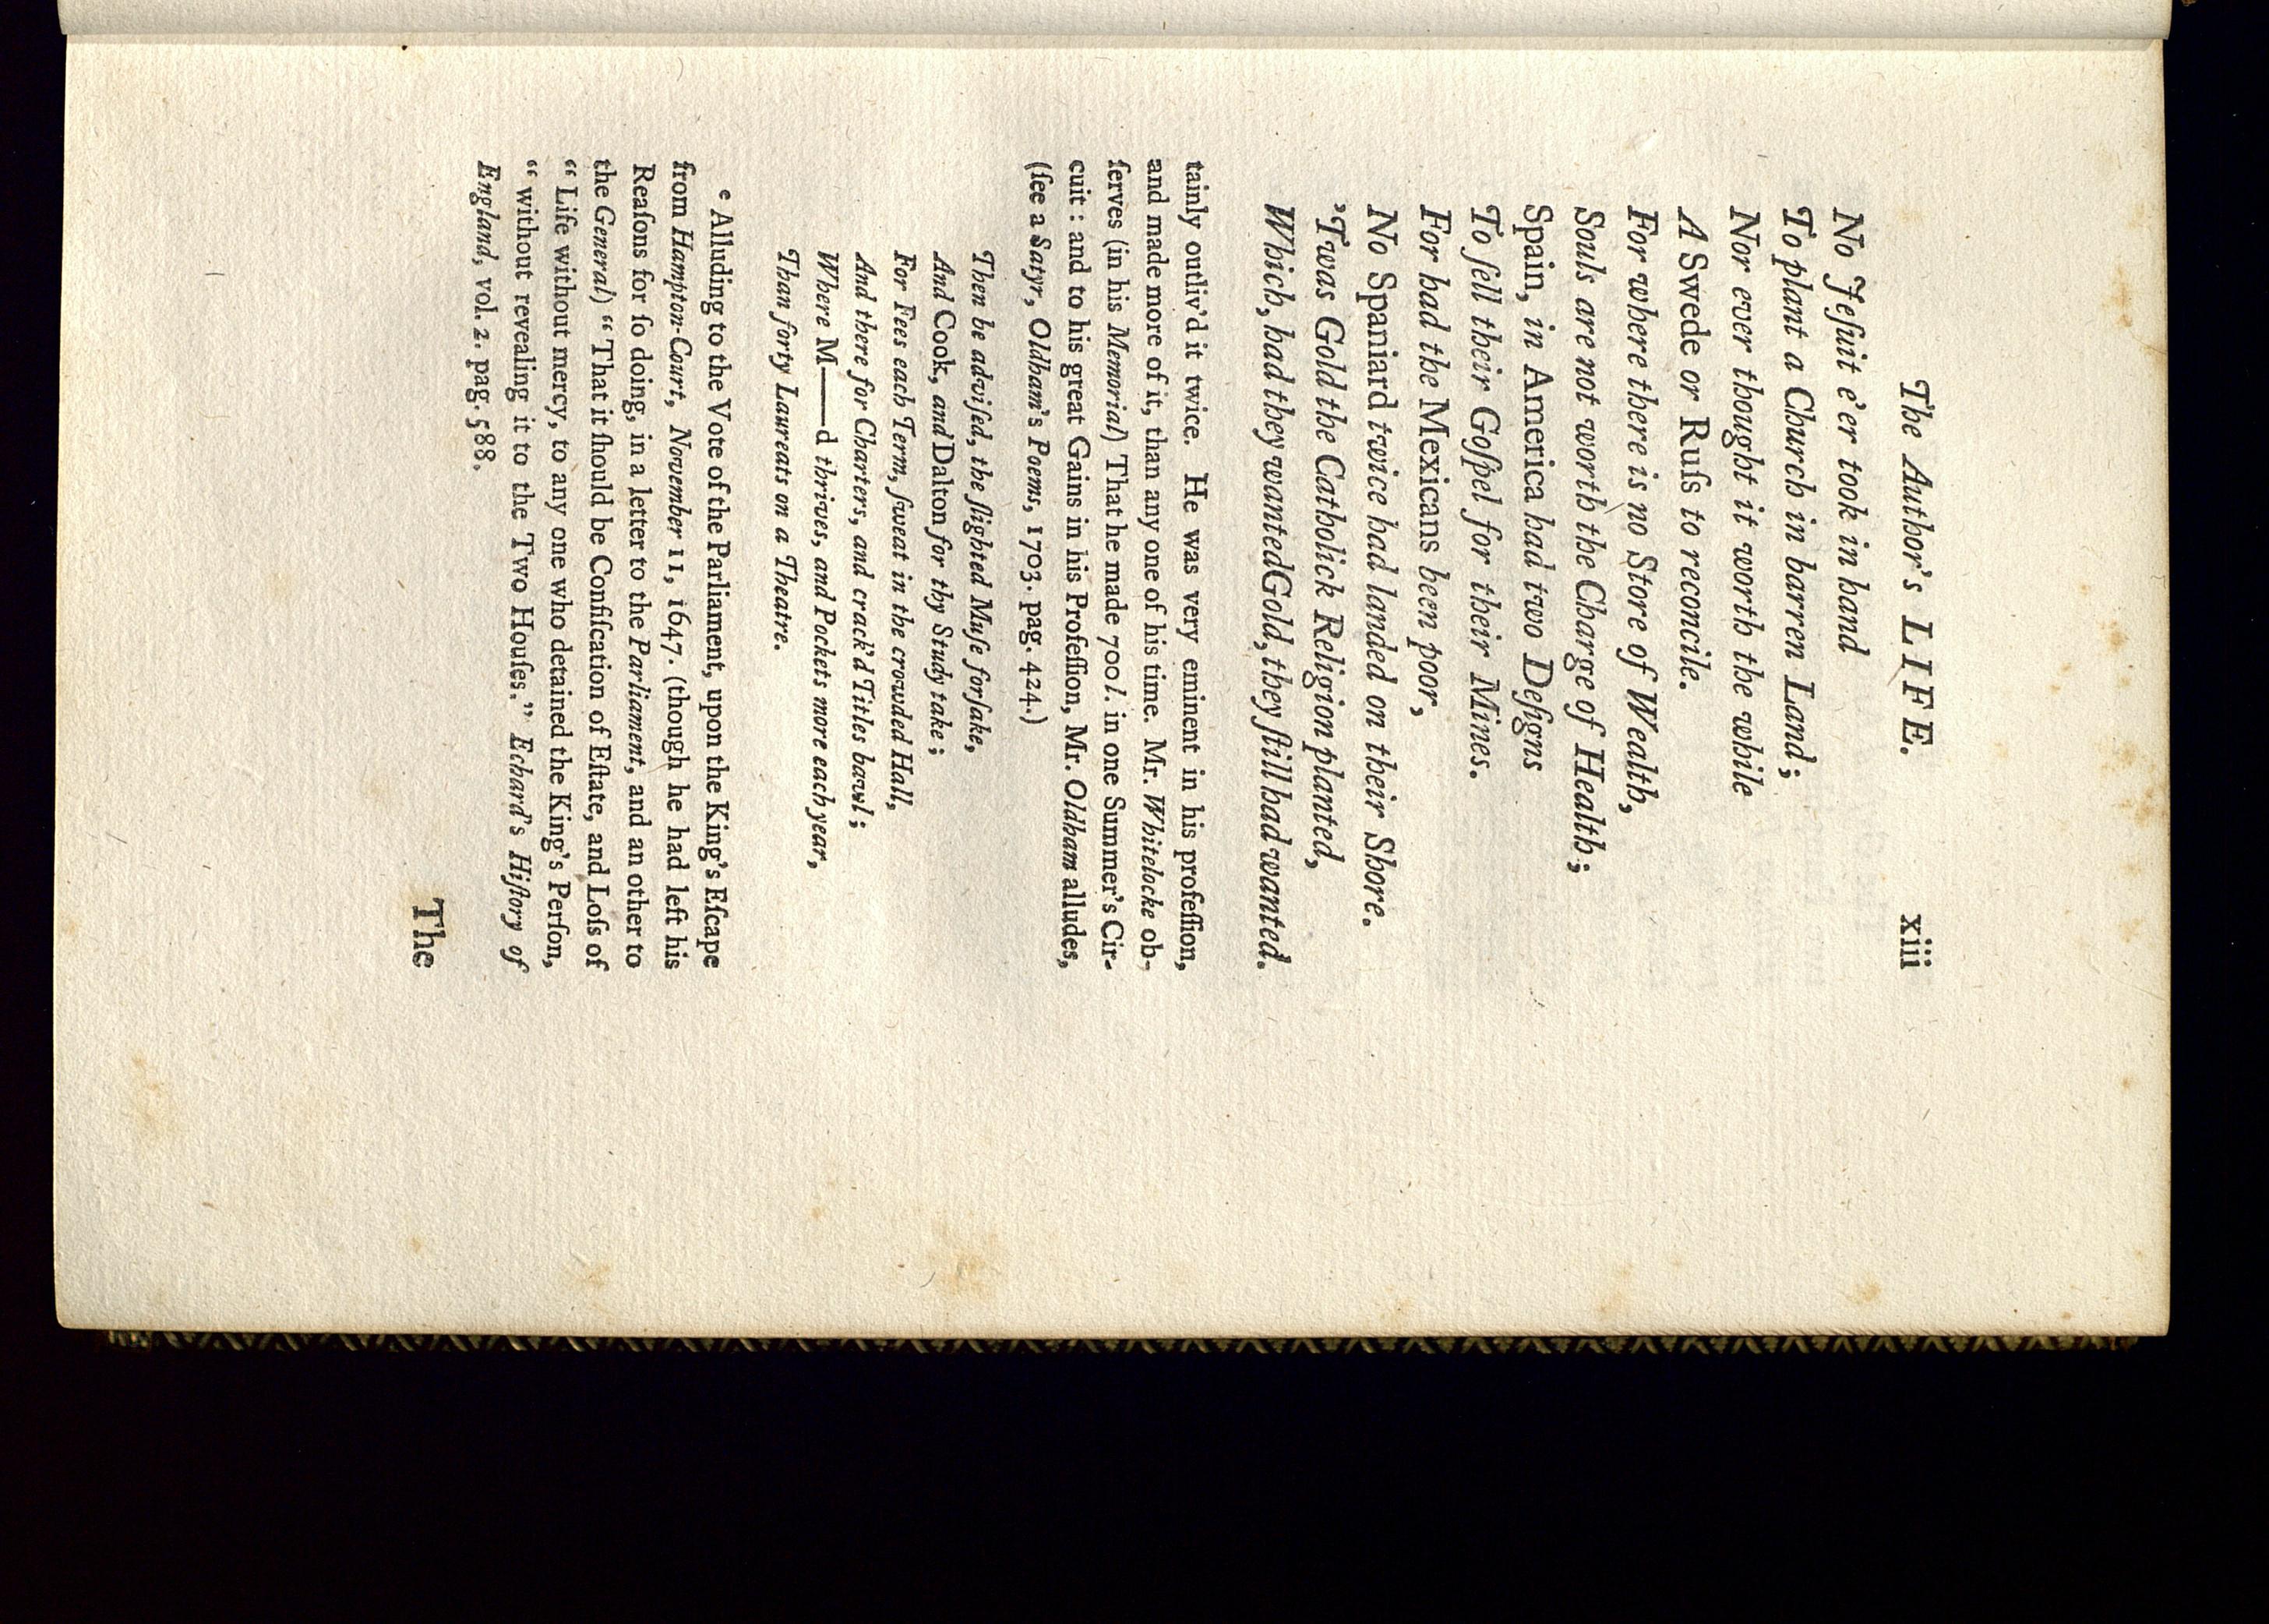 The Author's LIFE. xiii
No Jeſuit e'er took in hand
To plant a Church in barren Land;
Nor ever thought it worth the while
A Swede or Ruſs to reconcile.
For where there is no Store of Wealth,
Souls are not worth the Charge of Health;
Spain, in America had two Deſigns
To ſell their Goſpel for their Mines.
For had the Mexicans been poor,
No Spaniard twice had landed on their Shore.
'Twas Gold the Catholick Religion planted,
Which, had they wanted Gold, they ſtill had wanted.
tainly outliv'd it twice. He was very eminent in his profeſſion,
and made more of it, than any one of his time. Mr. Whitelocke ob-
ſerves (in his Memorial) That he made 700l. in one Summer's Cir-
cuit: and to his great Gains in his Profeſſion, Mr. Oldham alludes,
(ſee a Satyr, Oldham's Poems, 1703. pag. 424.)
Then be adviſed, the ſlighted Muſe forſake,
And Cook, and Dalton for thy Study take;
For Fees each Term, ſweat in the crowded Hall,
And there for Charters, and crack'd Titles bawl;
Where M——d thrives, and Pockets more each year,
Than forty Laureats on a Theatre.
e Alluding to the Vote of the Parliament, upon the King's Eſcape
from Hampton-Court, November 11, 1647. (though he had left his
Reaſons for ſo doing, in a letter to the Parliament, and an other to
the General) "That it ſhould be Confiſcation of Eſtate, and Loſs of
" Life without mercy, to any one who detained the King's Perſon,
" without revealing it to the Two Houſes." Echard's Hiſtory of
England, vol. 2. pag. 588.
The